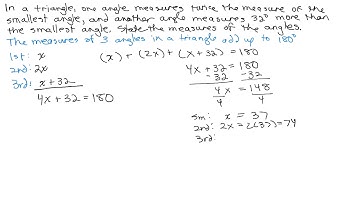 In a triangle, one angle measures twice the measure of the
smallest angle, and another angle measures 32° more than
the smallest angle. State the measures of the angles.
The measures of 3 angles in a triangle add up to 180°
1st: x
2nd: 2x
3rd: x+32
4x+32=180
(x) + (2x) + (x+32) = 180
4x + 32 = 180
-32 -32
4x = 148
4 4
sm: x = 37
2nd: 2x = 2(37) = 74
3rd: